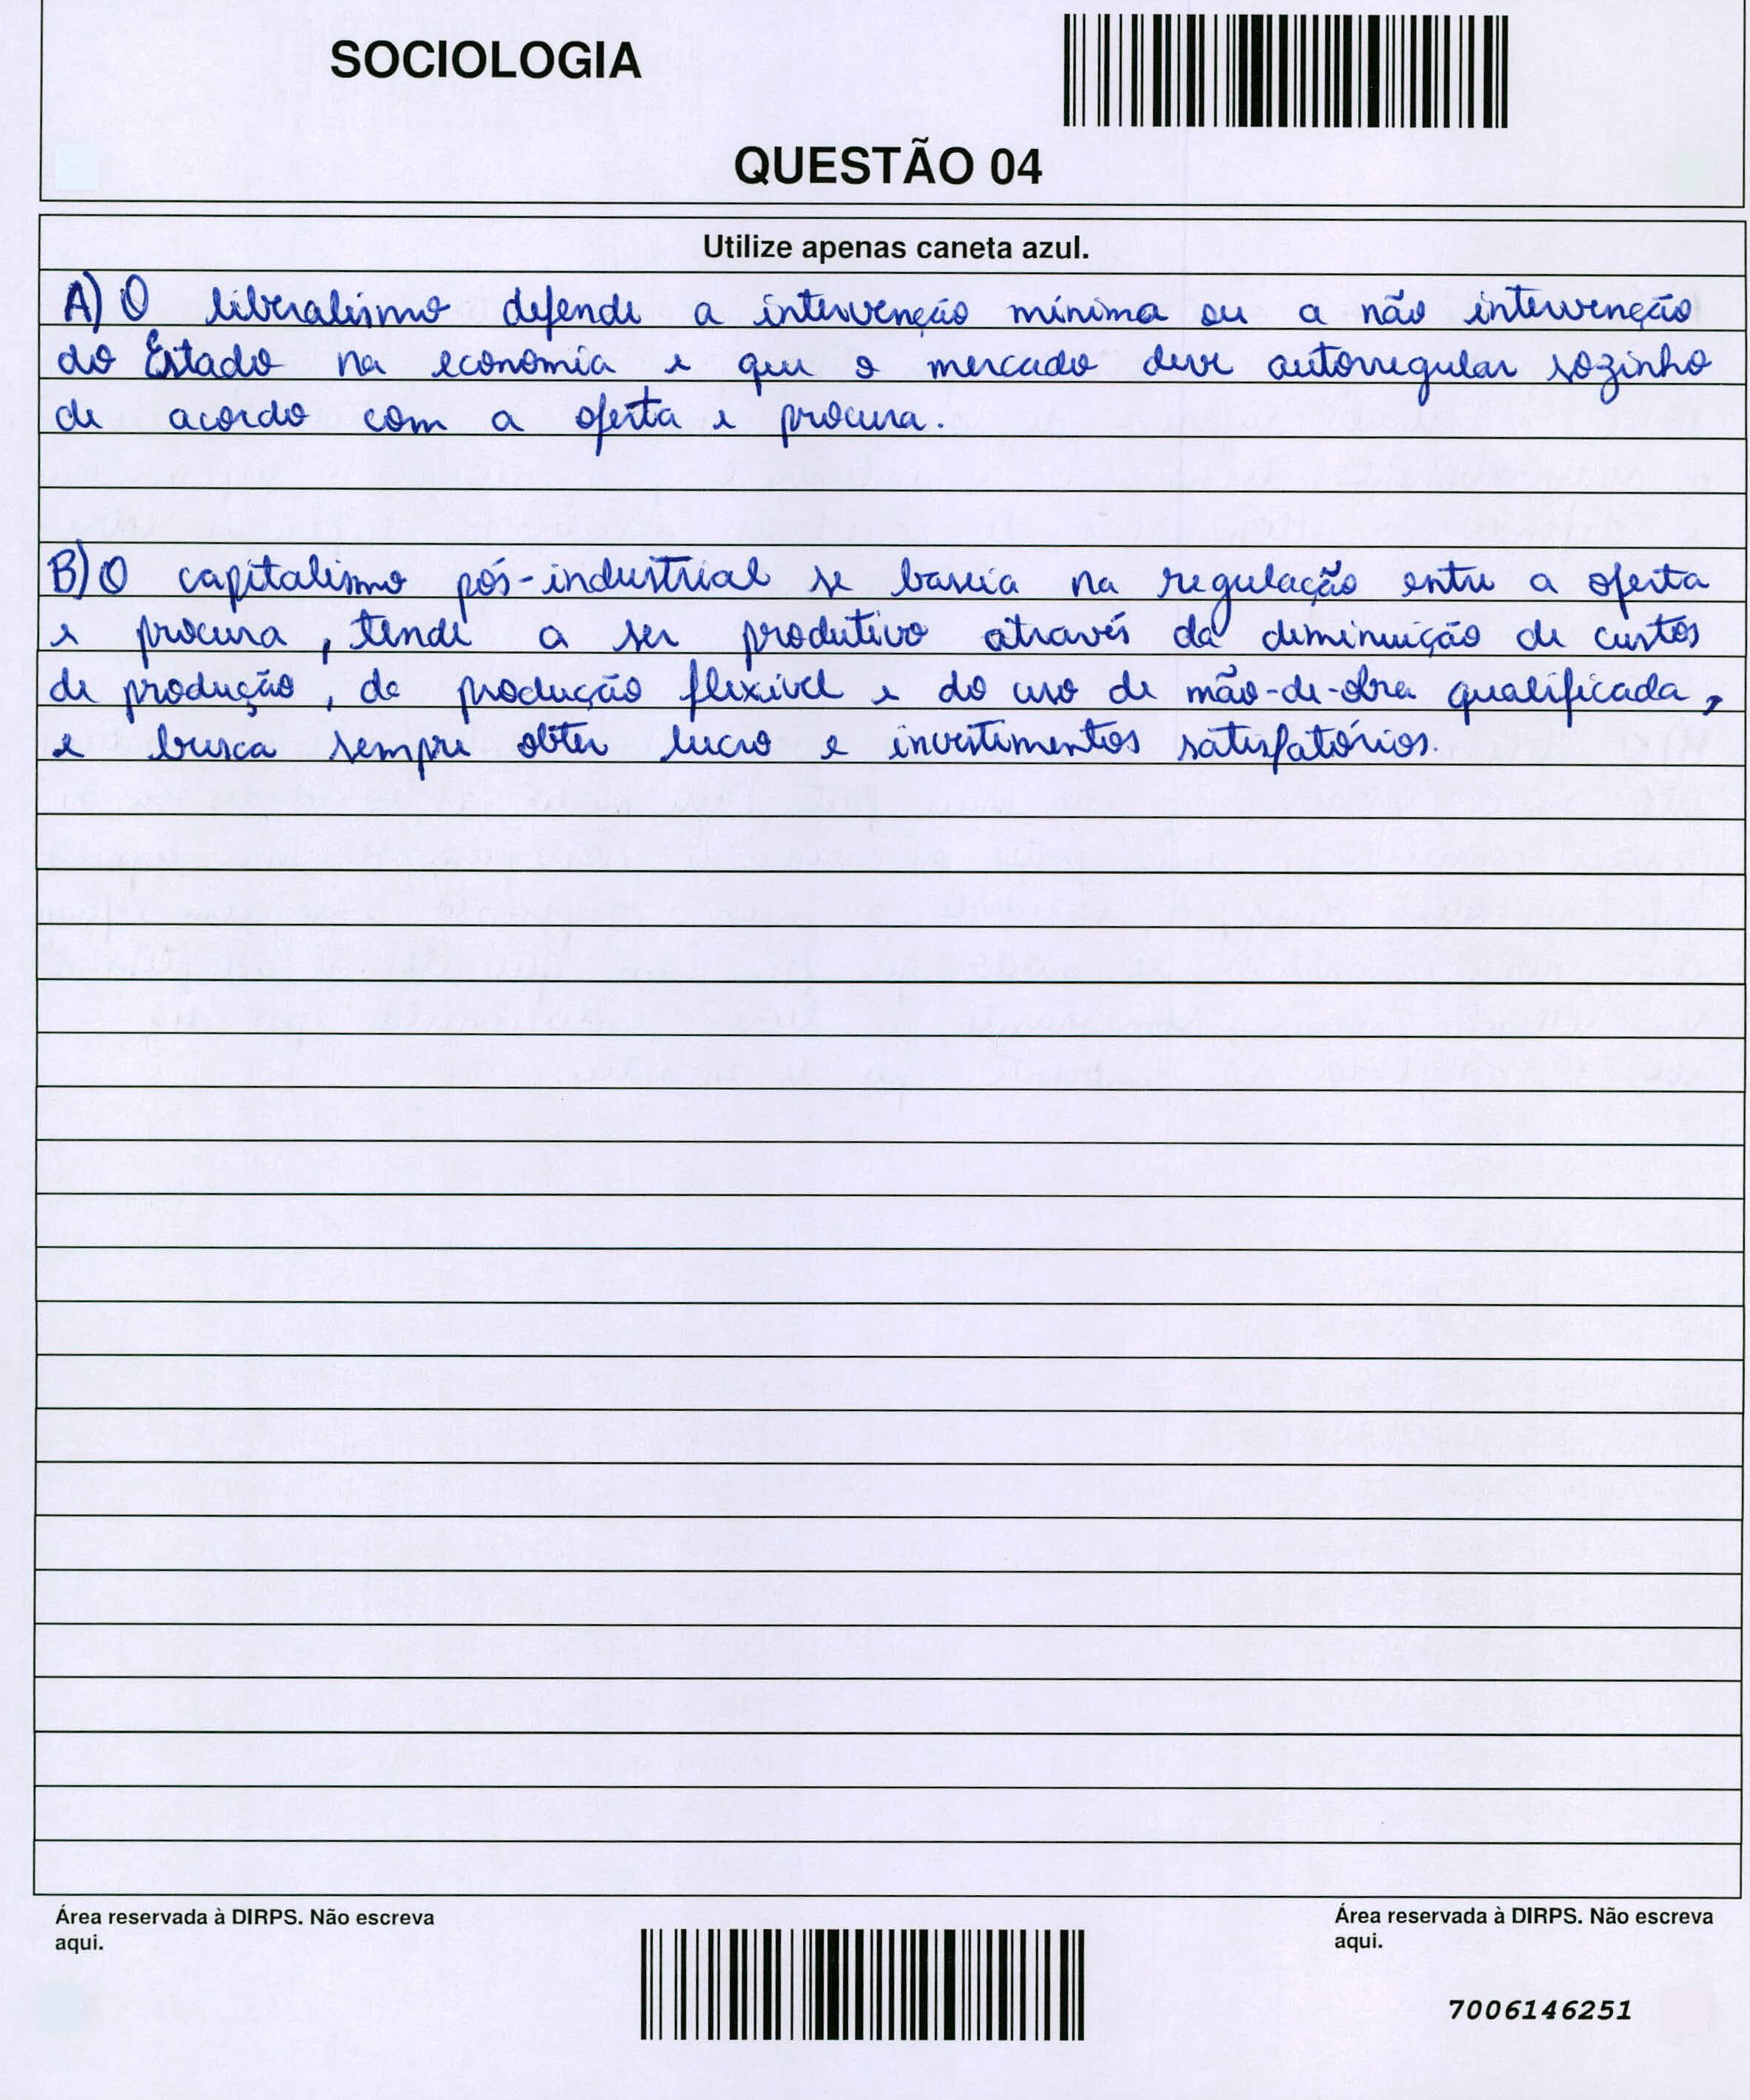 SOCIOLOGIA
QUESTÃO 04
Utilize apenas caneta azul.
A) O liberalismo defende a intervenção mínima ou a não intervenção
do Estado na economia e que o mercado deve autorregular sozinho
de acordo com a oferta e procura.
B) O capitalismo pós-industrial se baseia na regulação entre a oferta
e procura, tende a ser produtivo através da diminuição de custos
de produção, da produção flexível e do uso de mão-de-obra qualificada,
e busca sempre obter lucro e investimentos satisfatórios.
Área reservada à DIRPS. Não escreva
aqui.
Área reservada à DIRPS. Não escreva
aqui.
7006146251